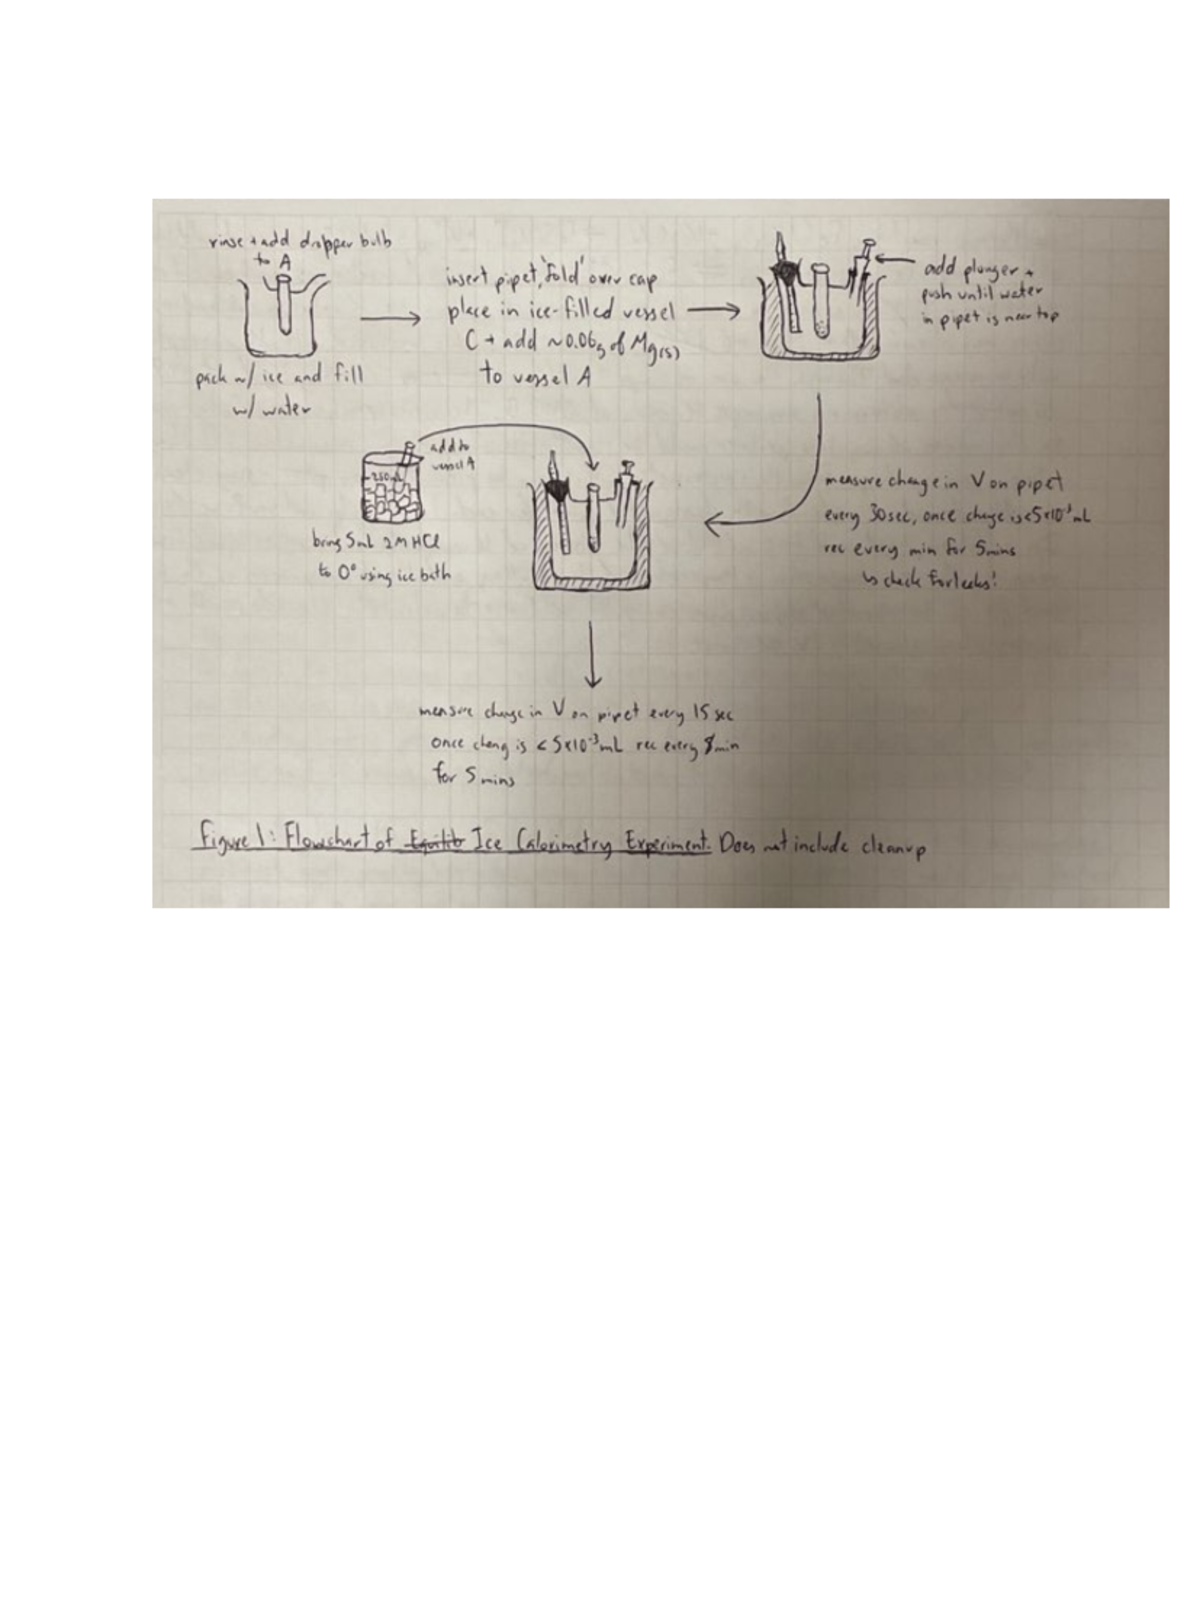 rinse + add dropper bulb
to A
pack w/ ice and fill
w/ water
insert pipet, 'fold' over cap
place in ice-filled vessel
C + add ~0.06g of Mg(s)
to vessel A
add plunger +
push until water
in pipet is near top
measure change in V on pipet
every 30sec, once change is <5x10⁻³mL
rec every min for 5mins
↳ check for leaks!
add to
vessel A
250mL
bring 5mL 2M HCl
to 0° using ice bath
measure change in V on pipet every 15 sec
once chang is <5x10⁻³mL rec every min
for 5 mins
Figure 1: Flowchart of Equilib Ice Calorimetry Experiment. Does not include cleanup